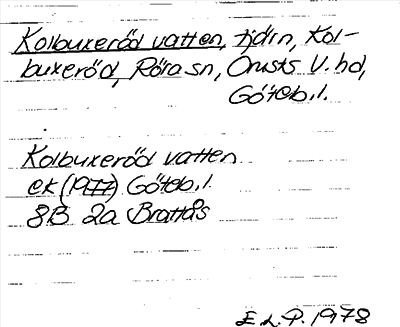 Kolbuxeröd vatten, tjärn, Kol-
buxeröd, Röra sn, Orusts V. hd,
Göteb. l.
Kolbuxeröd vatten
ek (1977) Göteb. l.
8B 2a Brattås
E. L. P. 1978